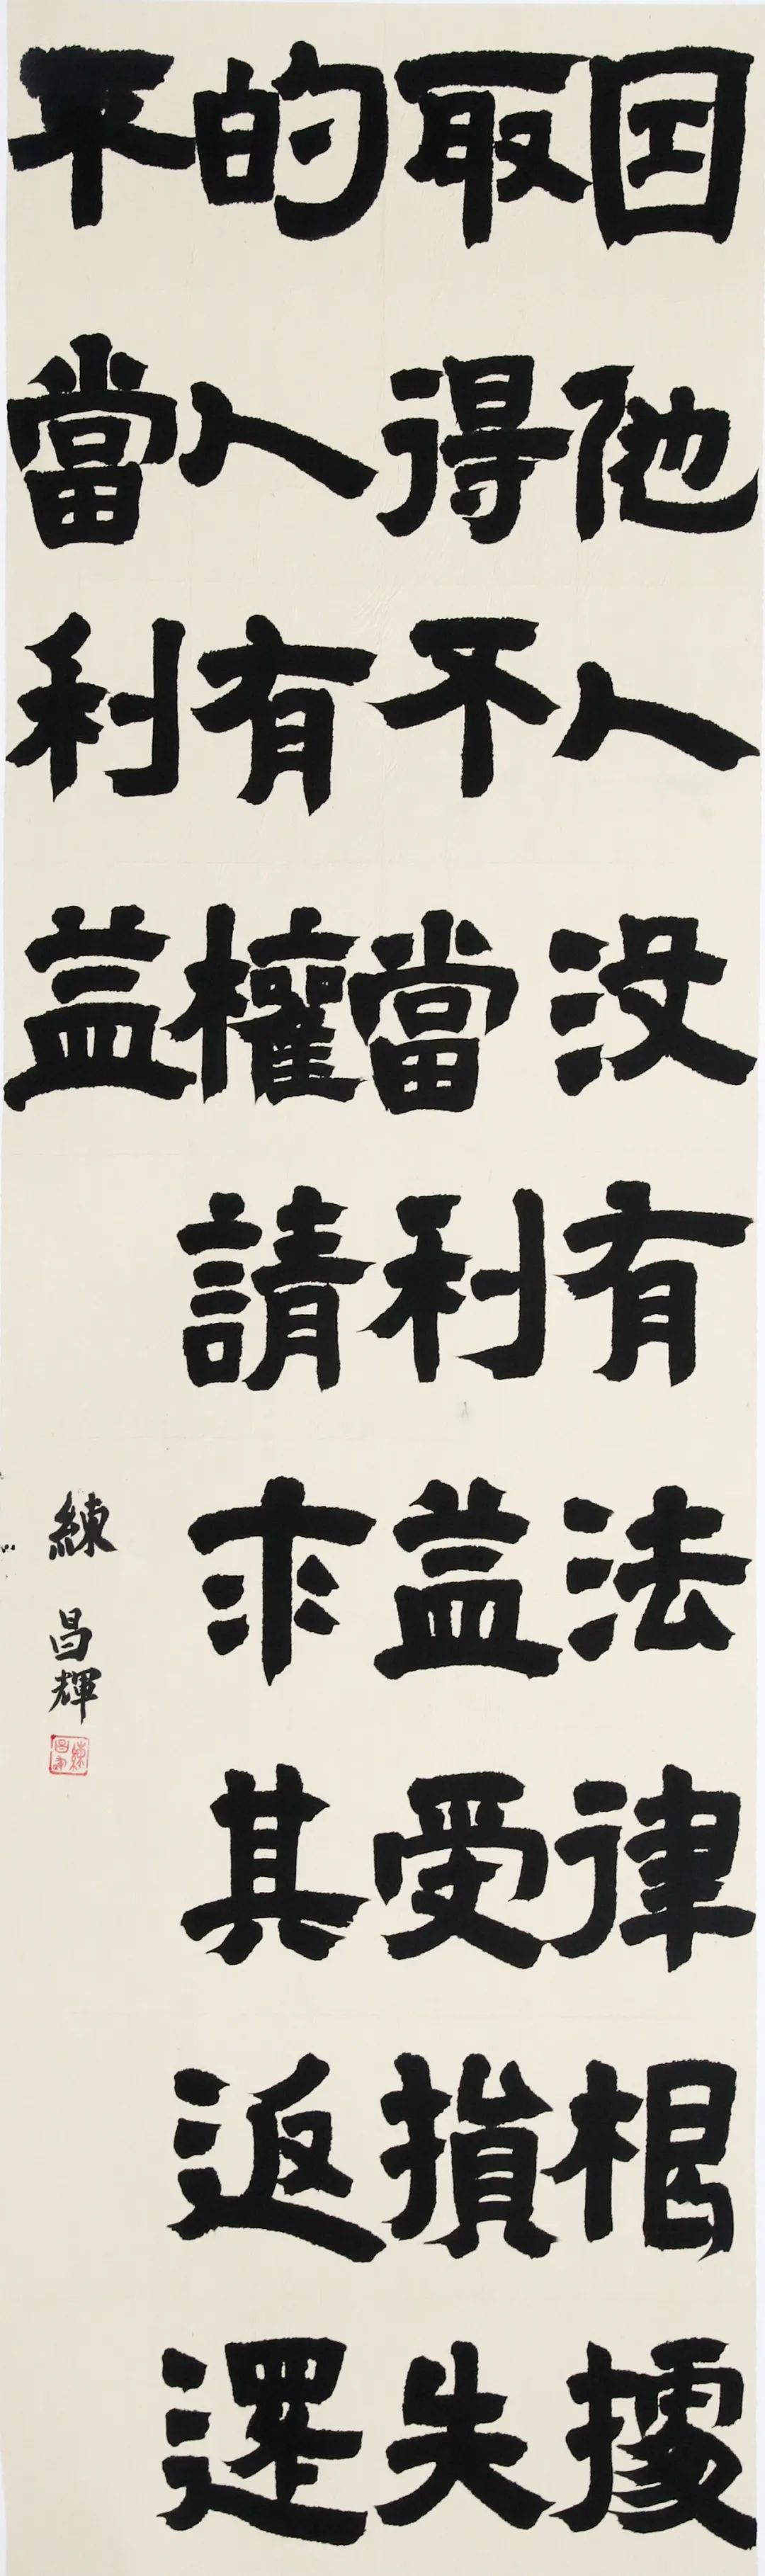 因他人没有法律根據
取得不當利益受損失
的人有權請求其返還
不當利益
練昌輝